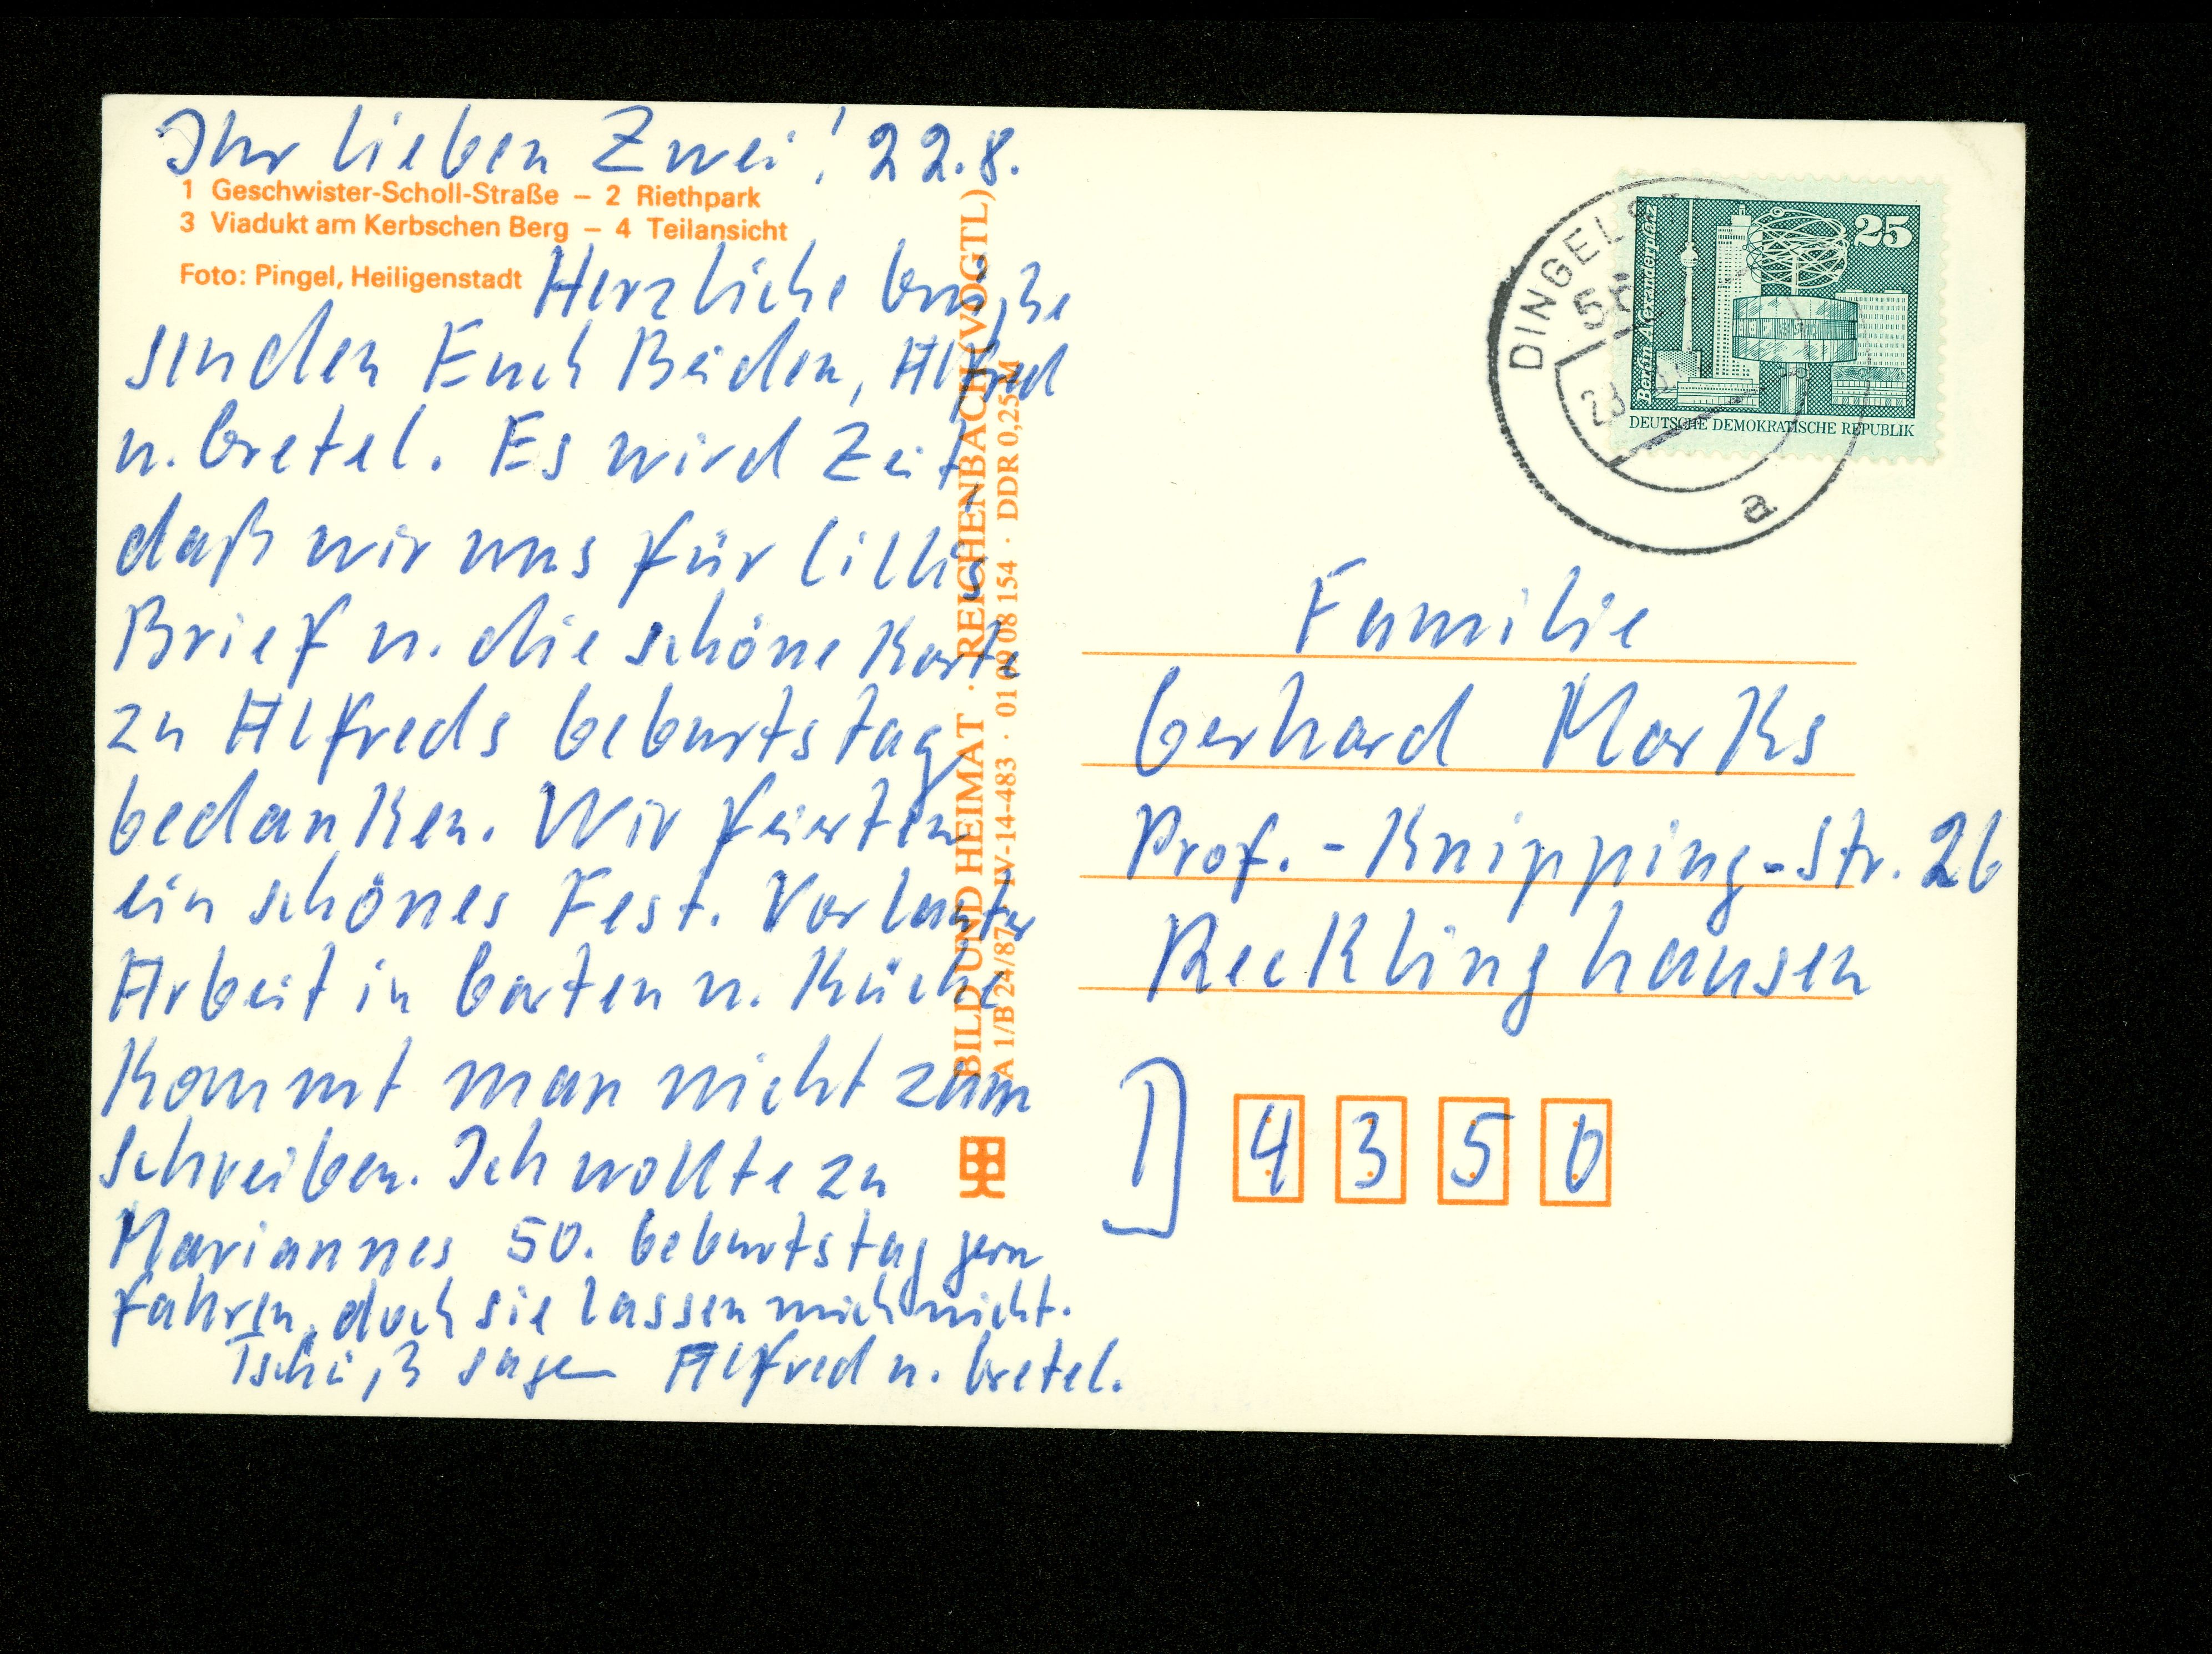 Ihr lieben Zwei! 22.8.
1 Geschwister-Scholl-Straße – 2 Riethpark
3 Viadukt am Kerbschen Berg – 4 Teilansicht
Foto: Pingel, Heiligenstadt
Herzliche Grüße
senden Euch Beiden, Alfred
u. Gretel. Es wird Zeit
daß wir uns für
Brief u. die schöne Karte
zu Alfreds Geburtstag
bedanken. Wir feierten
ein schönes Fest. Vor lauter
Arbeit in Garten u. Küche
kommt man nicht zum
schreiben. Ich wollte zu
Mariannes 50. Geburtstag gern
fahren, doch sie lassen mich nicht.
Tschüß sagen Alfred u. Gretel.
BILD UND HEIMAT · REICHENBACH (VOGTL)
A 1/B 24/87 IV-14-483 · 01 09 08 154 · DDR 0,25 M
DINGELS
25
Berlin Alexanderplatz
DEUTSCHE DEMOKRATISCHE REPUBLIK
a
Familie
Gerhard Marks
Prof.-Knipping-Str. 26
Recklinghausen
D 4350